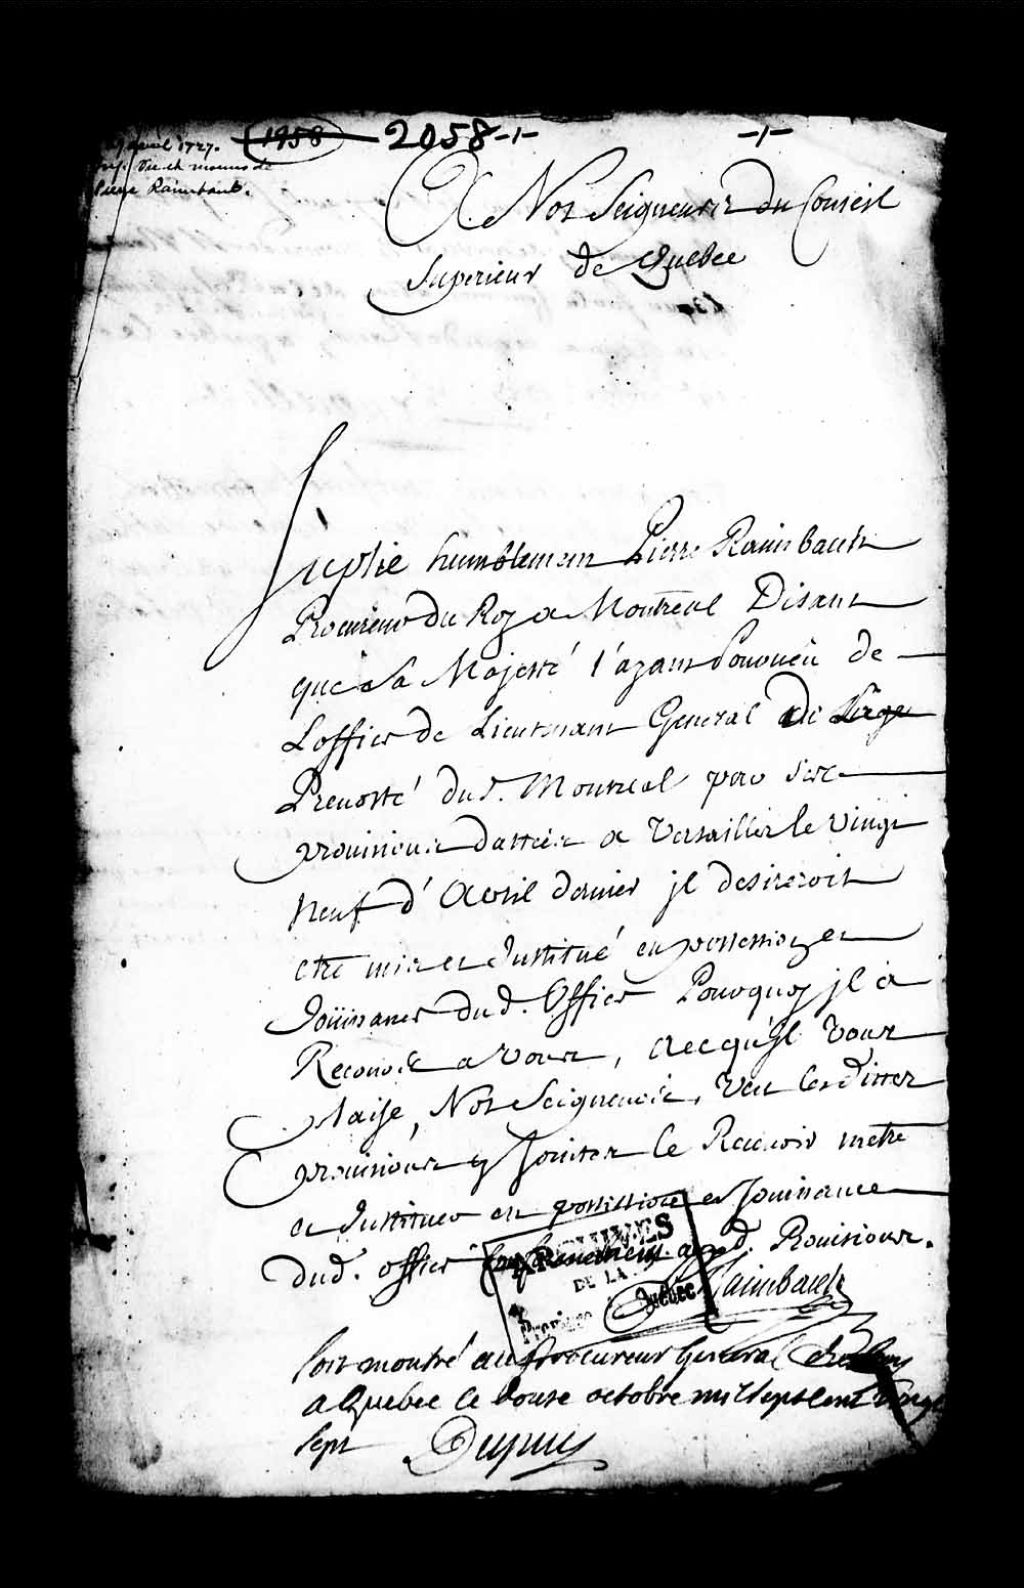 avril 1727.
1958 2058
Vie et moeurs de
Pierre Raimbault.
A Nos Seigneurs du Conseil
Superieur de Quebec
Suplie humblement Pierre Raimbault
Procureur du Roy a Montreal Disant
que Sa Majesté l'ayant Pourveu de
Loffice de Lieutenant General de
Prevosté dud. Montreal par ses
provisions dattées a Versailles le vingt
neuf d'Avril dernier jl desireroit
etre mis et Institué en possession et
Joüissance dud. Office Pourquoy jl a
Recours a vous, acequ'jl vous
plaise, Nos Seigneurs, veu lesdittes
provisions y Jointes le Recevoir metre
et Instituer en possession et Jouissance
dud. office Conformement auxd. Provisions.
Raimbault
ARCHIVES
DE LA
Province
Québec
Soit montré au procureur General du Roy
a Quebec ce douze octobre mil sept cent vingt
sept Dupuy